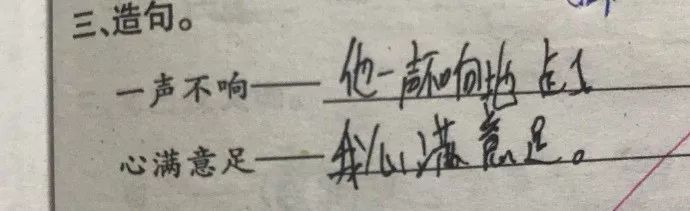 三、造句。
一声不响——他一声不响地走了
心满意足——我心满意足。